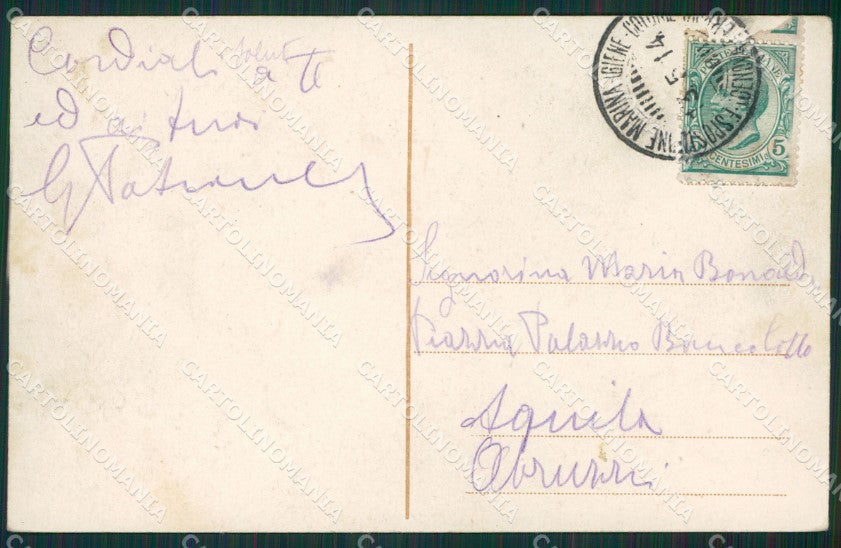 Cordiali saluti
a te
ed ai tuoi
Signorina Maria
Piazza Palazzo
Aquila
Abruzzi
ESPOSIZIONE MARINA IGIENE COLON
14
POSTE
5
CENTESIMI
CARTOLINOMANIA